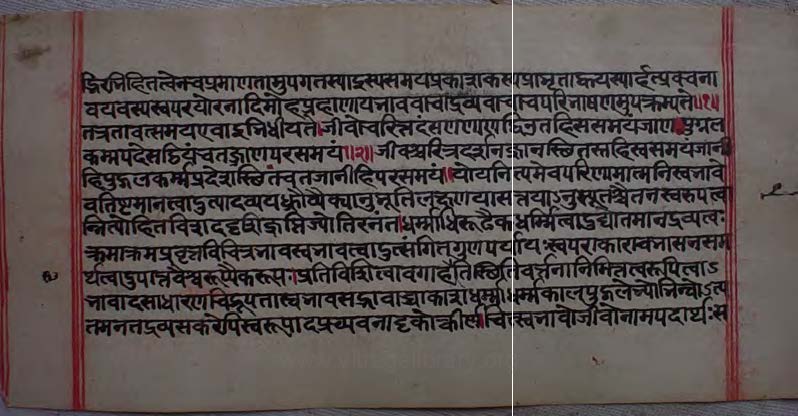 द्भिरभिहितत्वेनचप्रमाणतामुपगतस्यास्यसमयप्रकाशकस्यप्राभृताह्वयस्यार्हत्प्रवचना
वयवस्यस्वपरयोरनादिमोहप्रहाणायभाववाचाद्रव्यवाचाचपरिभाषणमुपक्रम्यते॥१॥
तत्रतावत्समयएवाभिधीयते।जीवोचरित्तदंसणणाणट्ठिउतंहिससमयंजाण।पुग्गल
कम्मपदेसट्ठियंचतंजाणपरसमयं॥२॥जीवश्चरित्रदर्शनज्ञानस्थितस्तंहिस्वसमयंजानी
हिपुद्गलकर्म्मप्रदेशस्थितंचतंजानीहिपरसमयं।योयंनित्यमेवपरिणामात्मनिस्वभावे
वतिष्टमानत्वादुत्पादव्ययध्रौव्यैक्यानुभूतिलक्षणयासत्तयाऽनुस्यूतश्चैतन्यस्वरूपत्वा
न्नित्योदितविशददृशिज्ञप्तिज्योतिरनंतधर्म्माधिरूढैकधर्म्मित्वादुद्योतमानद्रव्यत्वः
क्रमाक्रमप्रवृत्तविचित्रभावस्वभावत्वादुत्संगितगुणपर्यायःस्वपराकारावभासनसम
र्थत्वादुपात्तवैश्वरूप्यैकरूपःप्रतिविशिष्टावगाहगतिस्थितिवर्त्तनानिमित्तत्वरूपित्वाऽ
भावादसाधारणचिद्रूपतास्वभावसद्भावाच्चाकाशधर्म्माधर्म्मकालपुद्गलेभ्योभिन्नोऽत्यं
तमनंतद्रव्यसंकरेपिस्वरूपादप्रच्यवनाट्टंकोत्कीर्णचित्स्वभावोजीवोनामपदार्थःस